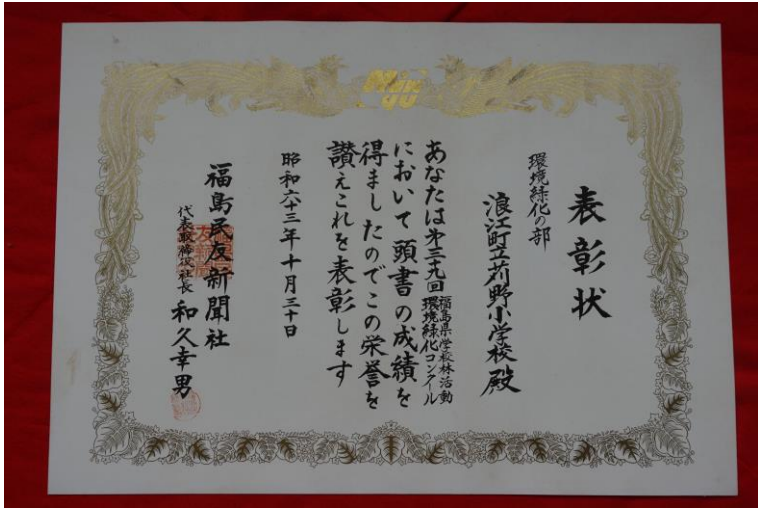 表彰状
環境緑化の部
浪江町立苅野小学校殿
あなたは第三九回福島県学校林活動環境緑化コンクール
において頭書の成績を
得ましたのでこの栄誉を
讃えこれを表彰します
昭和六十三年十月三十日
福島民友新聞社
代表取締役社長 和久幸男